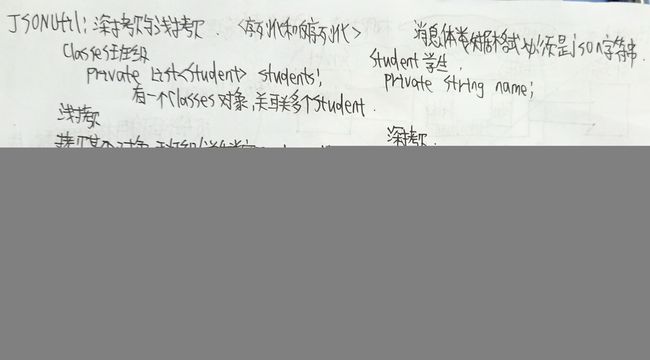 JSONUtil: 深拷贝与浅拷贝. <序列化和反序列化> 消息体数据格式必须是json字符串.
Classes班级 Student 学生.
private List<Student> students; private String name;
有一个Classes对象, 关联多个Student.
浅拷贝 深拷贝.